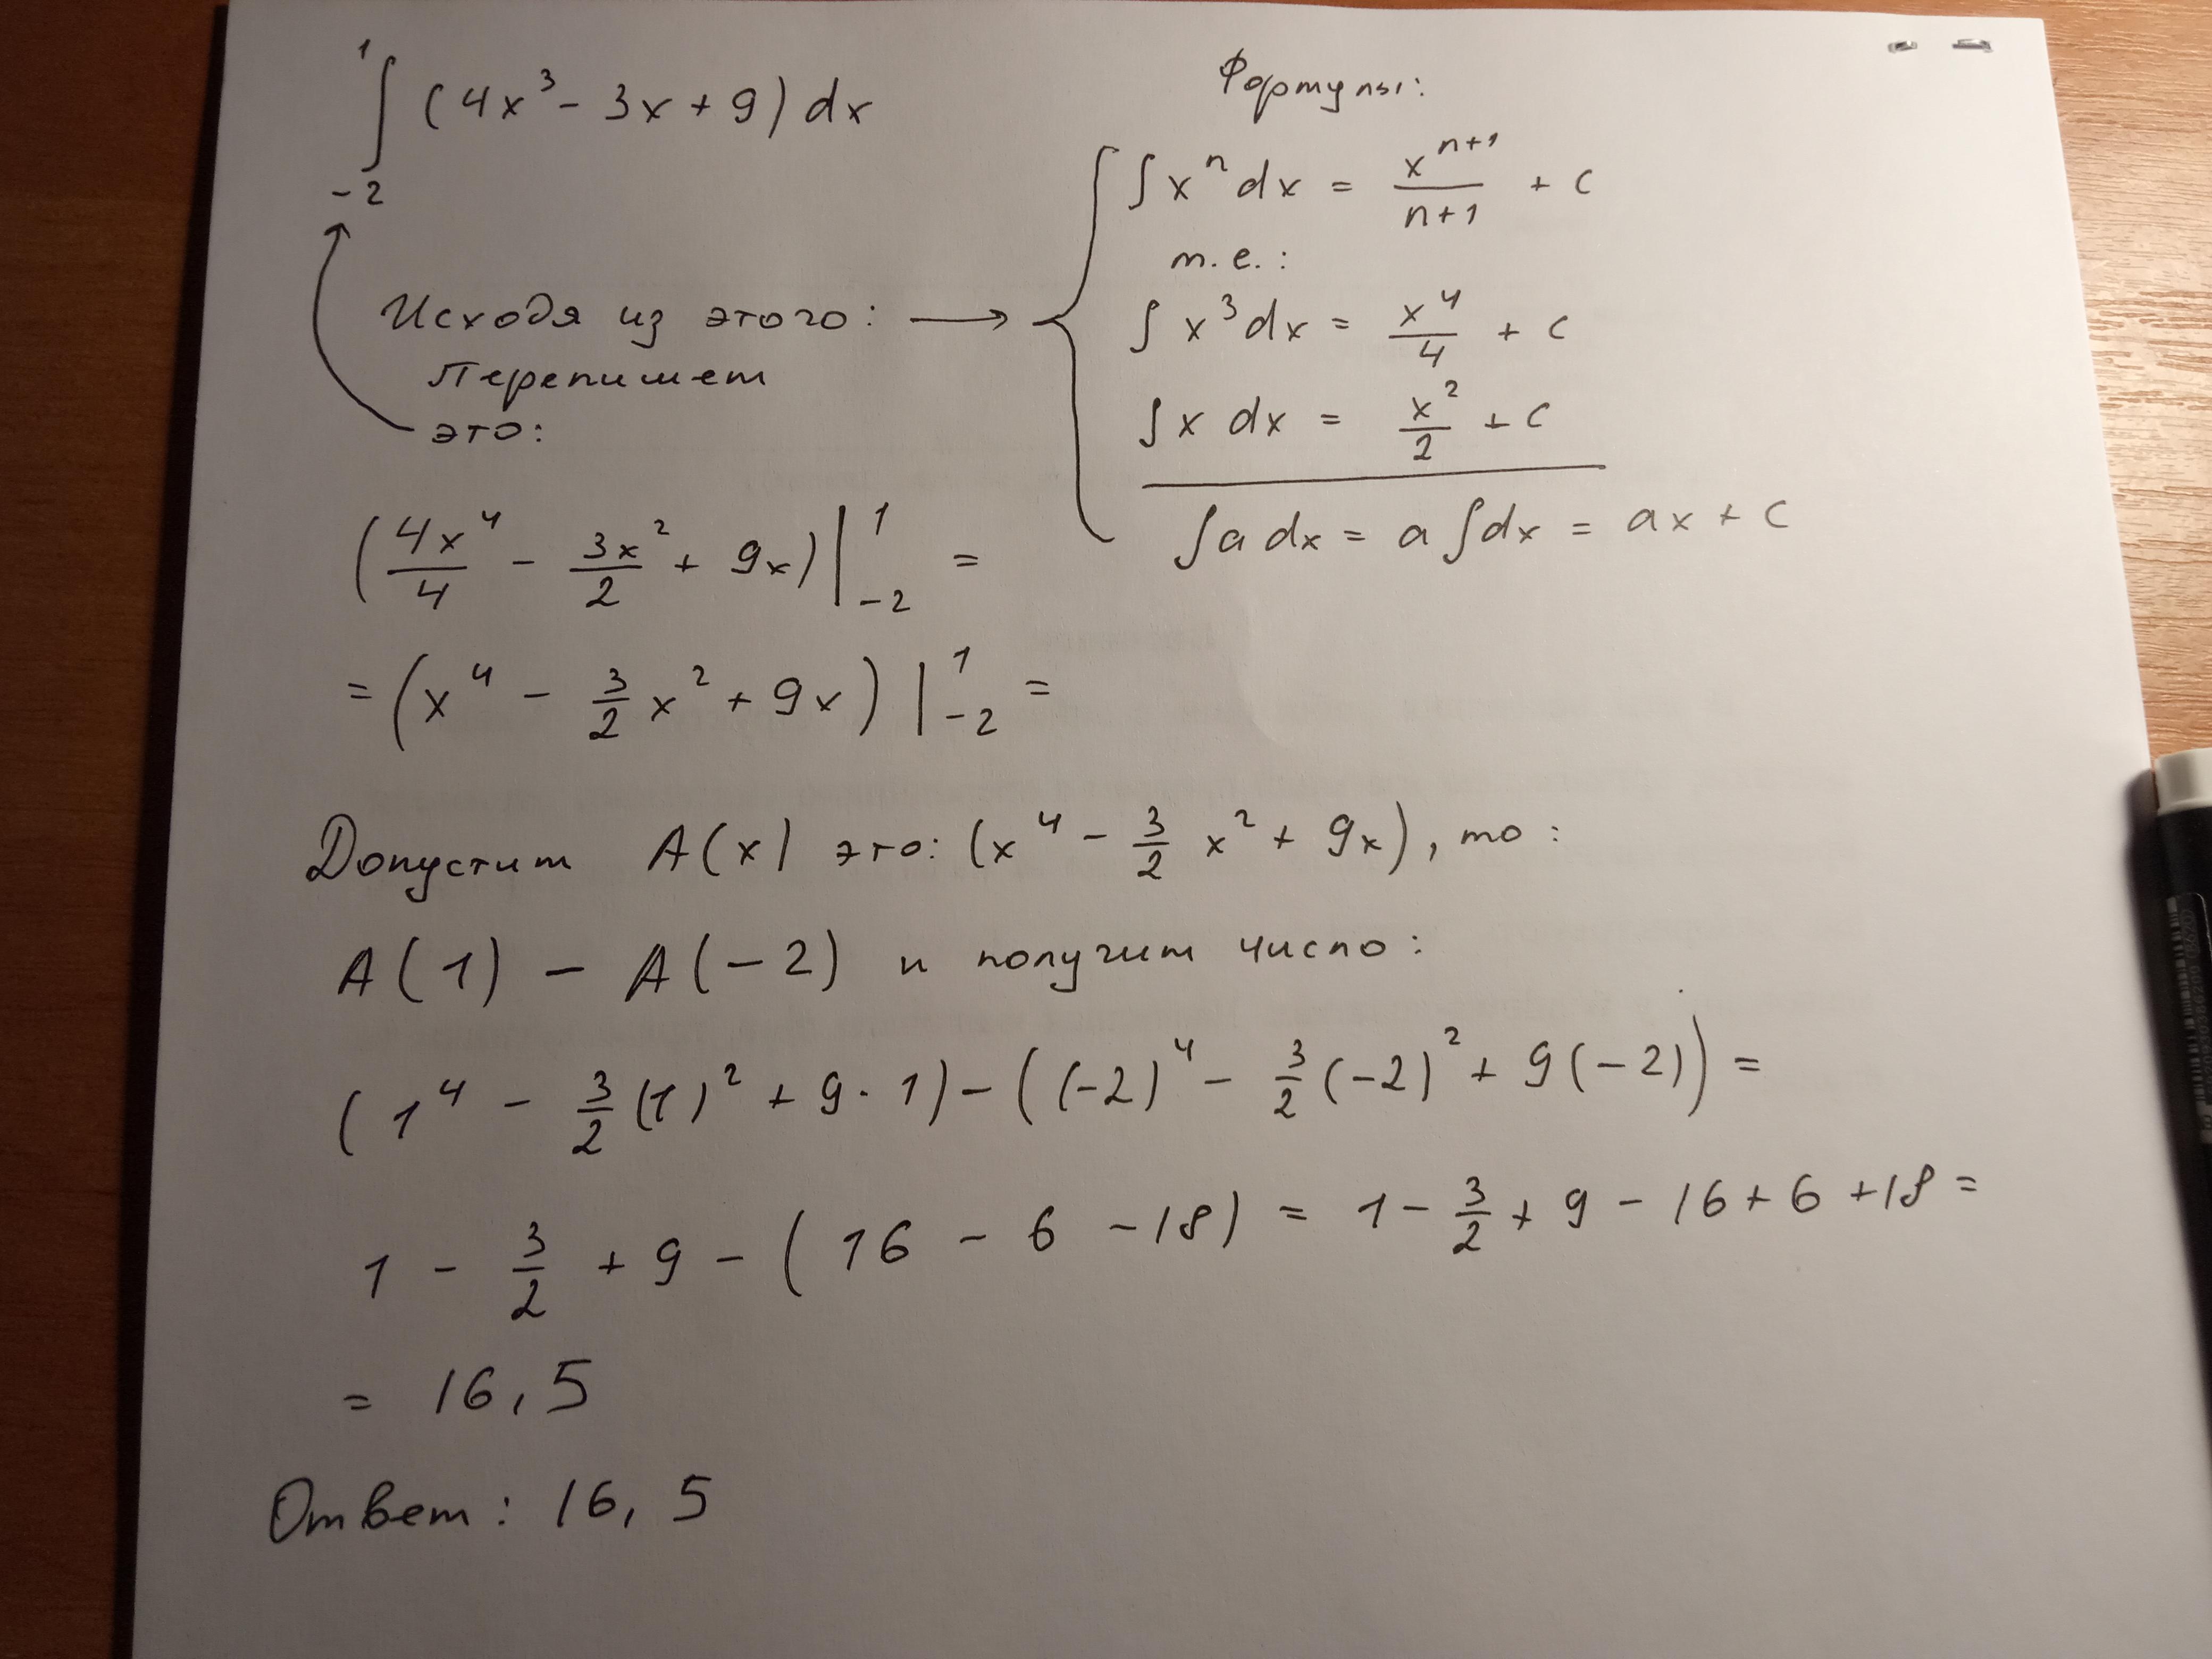 ∫₋₂¹ (4x³ - 3x + 9) dx
Формулы:
∫ xⁿ dx = xⁿ⁺¹/(n+1) + c
т.е.:
∫ x³ dx = x⁴/4 + c
∫ x dx = x²/2 + c
∫ a dx = a ∫ dx = ax + c
Исходя из этого: →
Перепишем
это:
(4x⁴/4 - 3x²/2 + 9x) |₋₂¹ =
= (x⁴ - 3/2 x² + 9x) |₋₂¹ =
Допустим A(x) это: (x⁴ - 3/2 x² + 9x), то:
A(1) - A(-2) и получим число:
(1⁴ - 3/2 (1)² + 9·1) - ((-2)⁴ - 3/2 (-2)² + 9(-2)) =
1 - 3/2 + 9 - (16 - 6 - 18) = 1 - 3/2 + 9 - 16 + 6 + 18 =
= 16,5
Ответ: 16,5